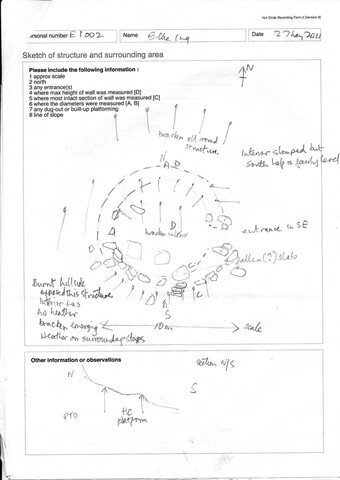 Hut Circle Recording Form 2 [Version 6]
Personal number EI 002 Name Elke Ing Date 2 May 2011
Sketch of structure and surrounding area
Please include the following information :
1 approx scale
2 north
3 any entrance(s)
4 where max height of wall was measured [D]
5 where most intact section of wall was measured [C]
6 where the diameters were measured [A, B]
7 any dug-out or built-up platforming
8 line of slope
N
bracken all round
structure
Interior slumped but
south half is fairly level
N
A D
D
bracken interior
entrance in SE
fallen (?) slabs
C
A
S
Burnt hillside
exposed this structure
Interior has
no heather
bracken emerging
Heather on surrounding slopes
10m scale
Other information or observations
section N/S
N
S
HC
platform
PTO